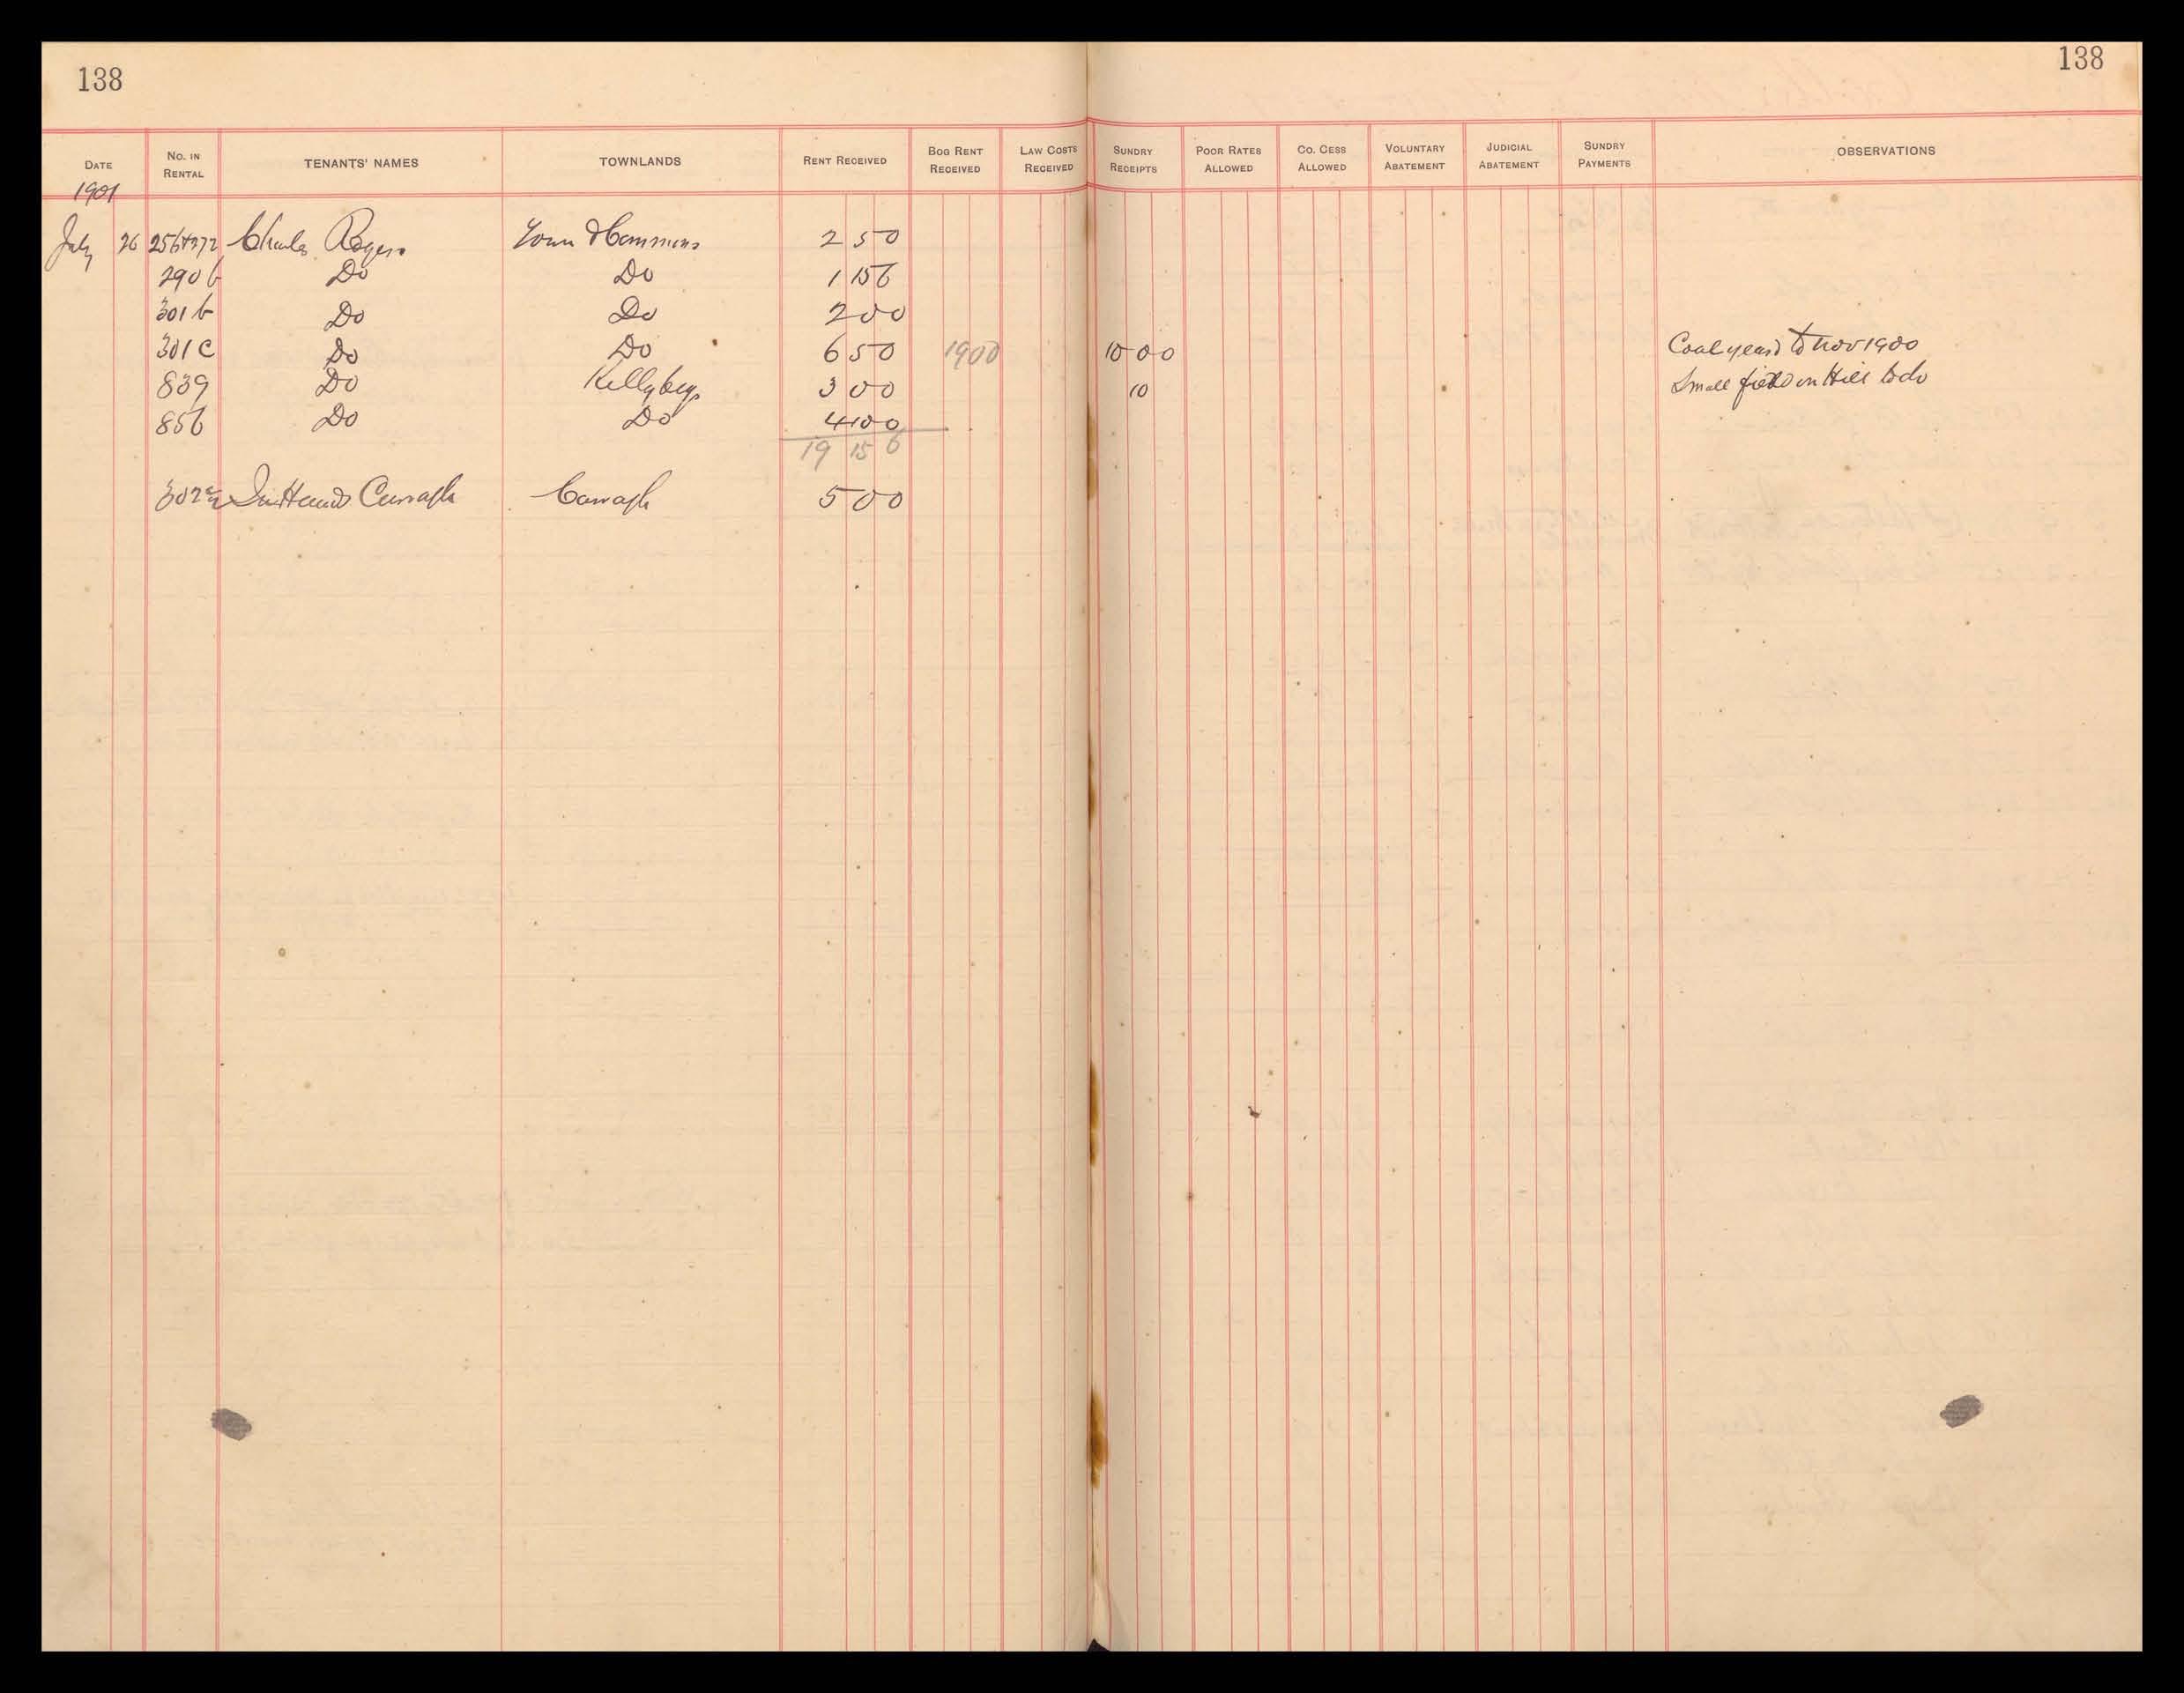 138 138
DATE NO. IN RENTAL TENANTS' NAMES TOWNLANDS RENT RECEIVED BOG RENT RECEIVED LAW COSTS RECEIVED SUNDRY RECEIPTS POOR RATES ALLOWED CO. CESS ALLOWED VOLUNTARY ABATEMENT JUDICIAL ABATEMENT SUNDRY PAYMENTS OBSERVATIONS
1901
July 26 256+272 Charles Rogers Town & Commons 2 5 0
290 b Do Do 1 15 6
301 b Do Do 2 0 0
301 C Do Do 6 5 0 1900 10 0 0 Coal yard to Nov 1900
839 Do Killybegs 3 0 0 10 Small field on Hill to do
856 Do Do 4 10 0
19 15 6
302 In Hands Curragh Curragh 5 0 0